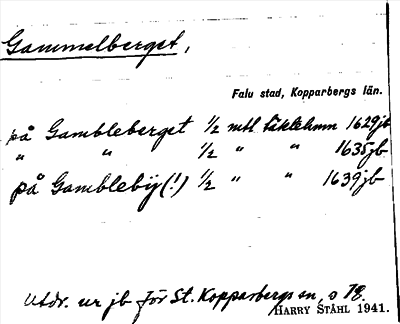 Gammelberget,
Falu stad, Kopparbergs län.
på Gambleberget 1/2 mtl. Säkteknm 1629 jb
" " 1/2 " " 1635 jb
på Gambleby(!) 1/2 " " 1639 jb
Utdr. ur jb för St. Kopparbergs sn, s 78.
HARRY STÅHL 1941.